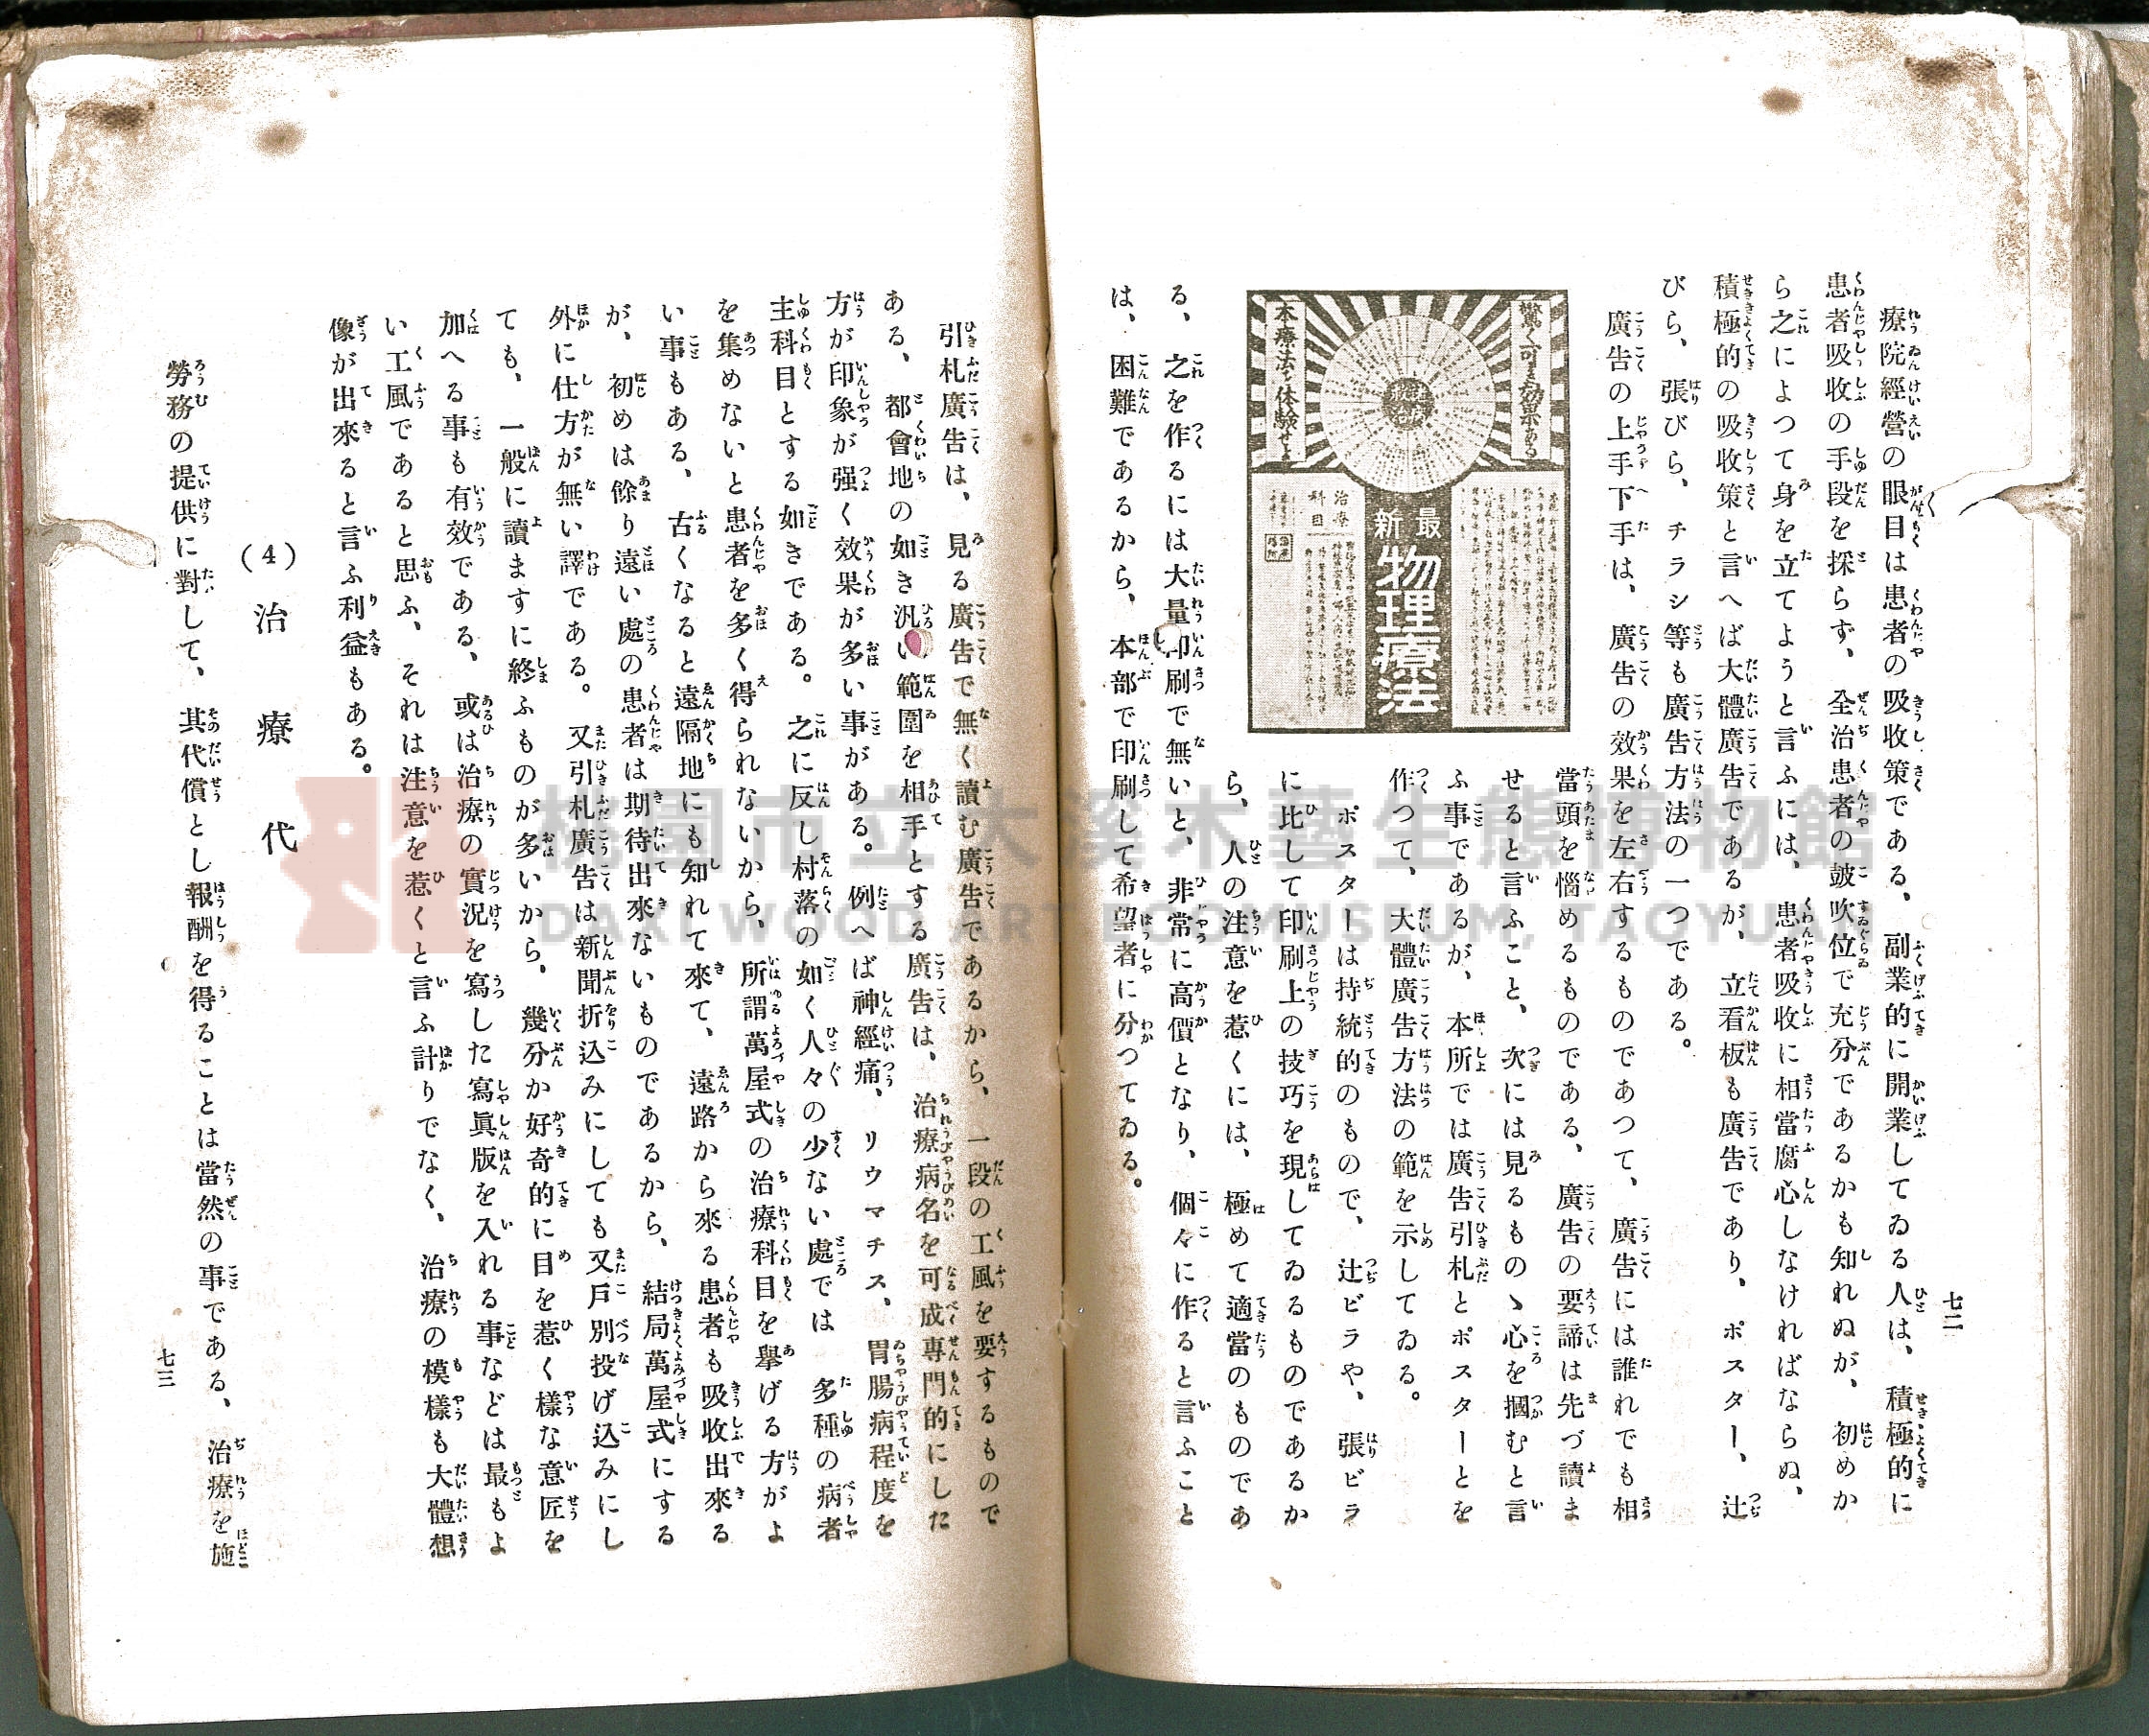 七二
療院經營の眼目は患者の吸收策である、副業的に開業してゐる人は、積極的に
患者吸收の手段を採らず、全治患者の皷吹位で充分であるかも知れぬが、初めか
ら之によつて身を立てようと言ふには、患者吸收に相當腐心しなければならぬ、
積極的の吸收策と言へば大體廣告であるが、立看板も廣告であり、ポスター、辻
びら、張びら、チラシ等も廣告方法の一つである。
廣告の上手下手は、廣告の效果を左右するものであつて、廣告には誰れでも相
當頭を惱めるものである、廣告の要諦は先づ讀ま
せると言ふこと、次には見るものゝ心を摑むと言
ふ事であるが、本所では廣告引札とポスターとを
作つて、大體廣告方法の範を示してゐる。
ポスターは持統的のもので、辻ビラや、張ビラ
に比して印刷上の技巧を現してゐるものであるか
ら、人の注意を惹くには、極めて適當のものであ
驚く可き効果ある
本療法を体験せよ
最新
物理療法
治療
科目
る、之を作るには大量印刷で無いと、非常に高價となり、個々に作ると言ふこと
は、困難であるから、本部で印刷して希望者に分つてゐる。
引札廣告は、見る廣告で無く讀む廣告であるから、一段の工風を要するもので
ある、都會地の如き汎い範圍を相手とする廣告は、治療病名を可成專門的にした
方が印象が强く效果が多い事がある。例へば神經痛、リウマチス、胃腸病程度を
主科目とする如きである。之に反し村落の如く人々の少ない處では多種の病者
を集めないと患者を多く得られないから、所謂萬屋式の治療科目を擧げる方がよ
い事もある、古くなると遠隔地にも知れて來て、遠路から來る患者も吸收出來る
が、初めは餘り遠い處の患者は期待出來ないものであるから、結局萬屋式にする
外に仕方が無い譯である。又引札廣告は新聞折込みにしても又戶別投げ込みにし
ても、一般に讀ますに終ふものが多いから、幾分か好奇的に目を惹く樣な意匠を
加へる事も有效である、或は治療の實況を寫した寫眞版を入れる事などは最もよ
い工風であると思ふ、それは注意を惹くと言ふ計りでなく、治療の模樣も大體想
像が出來ると言ふ利益もある。
(4) 治療代
勞務の提供に對して、其代償とし報酬を得ることは當然の事である、治療を施
七三
桃園市立大溪木藝生態博物館
DAXI WOOD ART ECOMUSEUM, TAOYUAN